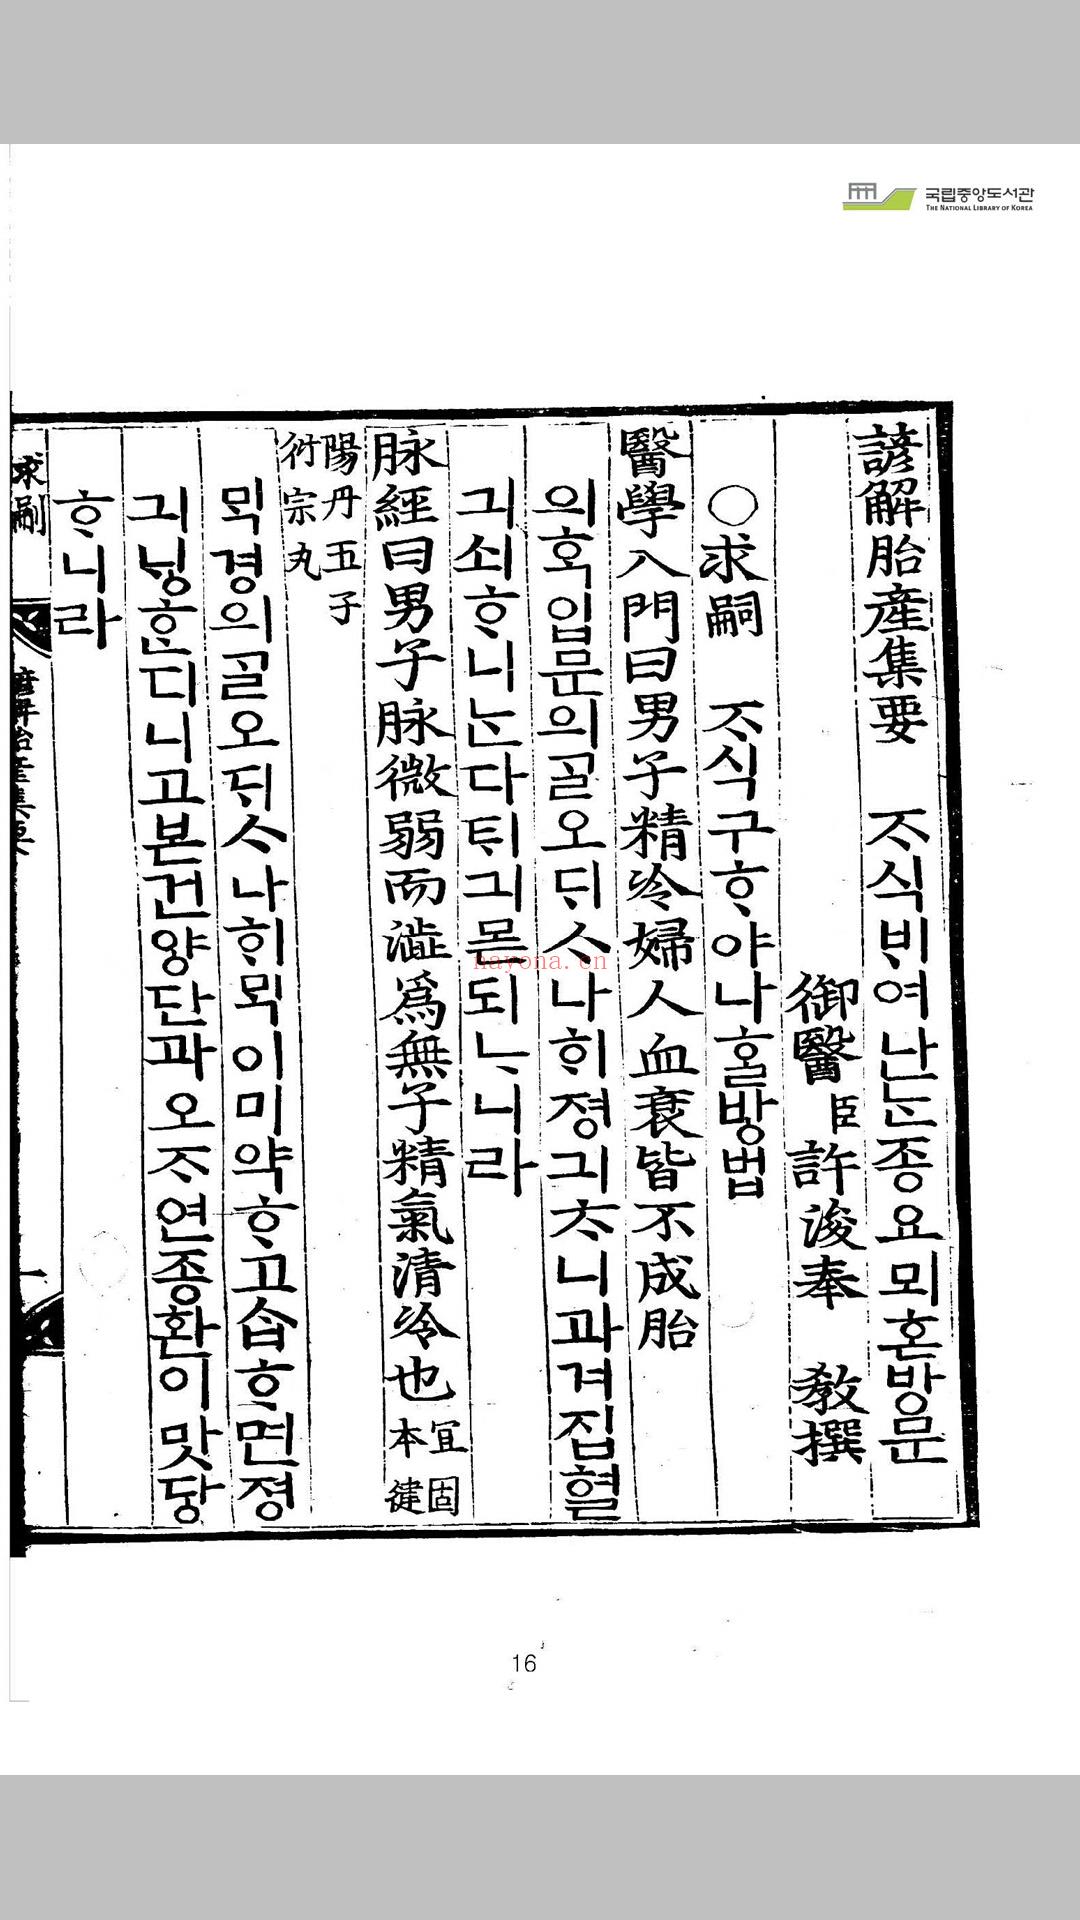 국립중앙도서관
THE NATIONAL LIBRARY OF KOREA
諺解胎産集要 ᄌᆞ식ᄇᆡ여난ᄂᆞᆫ죵요뫼혼방문
御醫臣許浚奉 敎撰
○求嗣 ᄌᆞ식구ᄒᆞ야나홀방법
醫學入門曰男子精冷婦人血衰皆不成胎
의ᄒᆞᆨ입문의ᄀᆞᆯ오ᄃᆡᄉᆞ나ᄒᆡ졍긔ᄎᆞ니과겨집혈
긔쇠ᄒᆞ니ᄂᆞᆫ다ᄐᆡ긔몯되ᄂᆞ니라
脉經曰男子脉微弱而澁爲無子精氣清冷也 宜固本健
陽丹五子衍宗丸
ᄆᆡᆨ경의ᄀᆞᆯ오ᄃᆡᄉᆞ나ᄒᆡᄆᆡᆨ이미약ᄒᆞ고습ᄒᆞ면졍
긔닝ᄒᆞᆫ디니고본건양단과오ᄌᆞ연종환이맛당
ᄒᆞ니라
求嗣
諺解胎産集要
一
nayona.cn
16